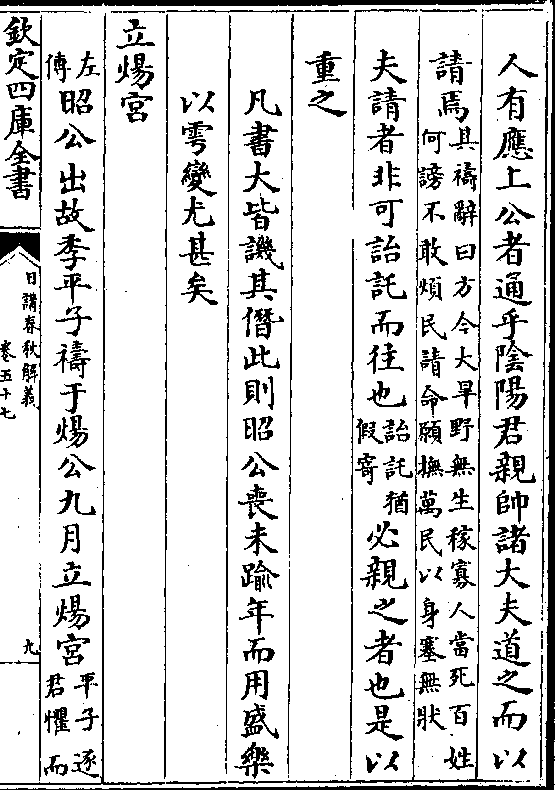 人有應上公者通乎隂陽君親帥諸大夫道之而以
請焉其禱辭曰方今大旱野無生稼寡人當死百姓
何謗不敢煩民請命願撫萬民以身塞無狀
夫請者非可詒託而往也詒託猶
假寄
必親之者也是以
重之
凡書大皆譏其僭此則昭公喪未踰年而用盛樂
以雩變尤甚矣
立煬宫
左
傳
昭公出故季平子禱于煬公九月立煬宫平子逐
君懼而
欽定四庫全書
日講春秋解義
卷五十七
九